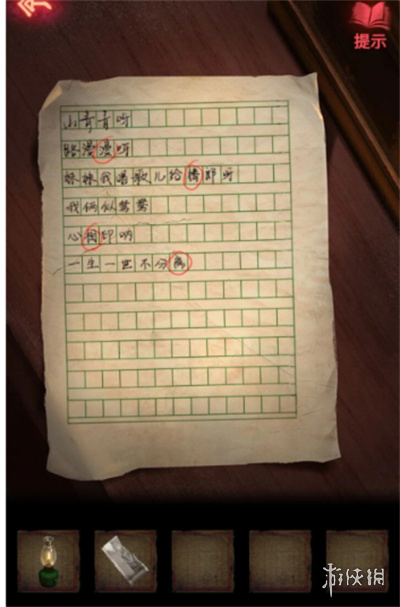 提示
山青青呀
路漫漫呀
妹妹我唱歌儿给情郎听
我俩似鸳鸯
心相印呐
一生一世不分离
游侠网